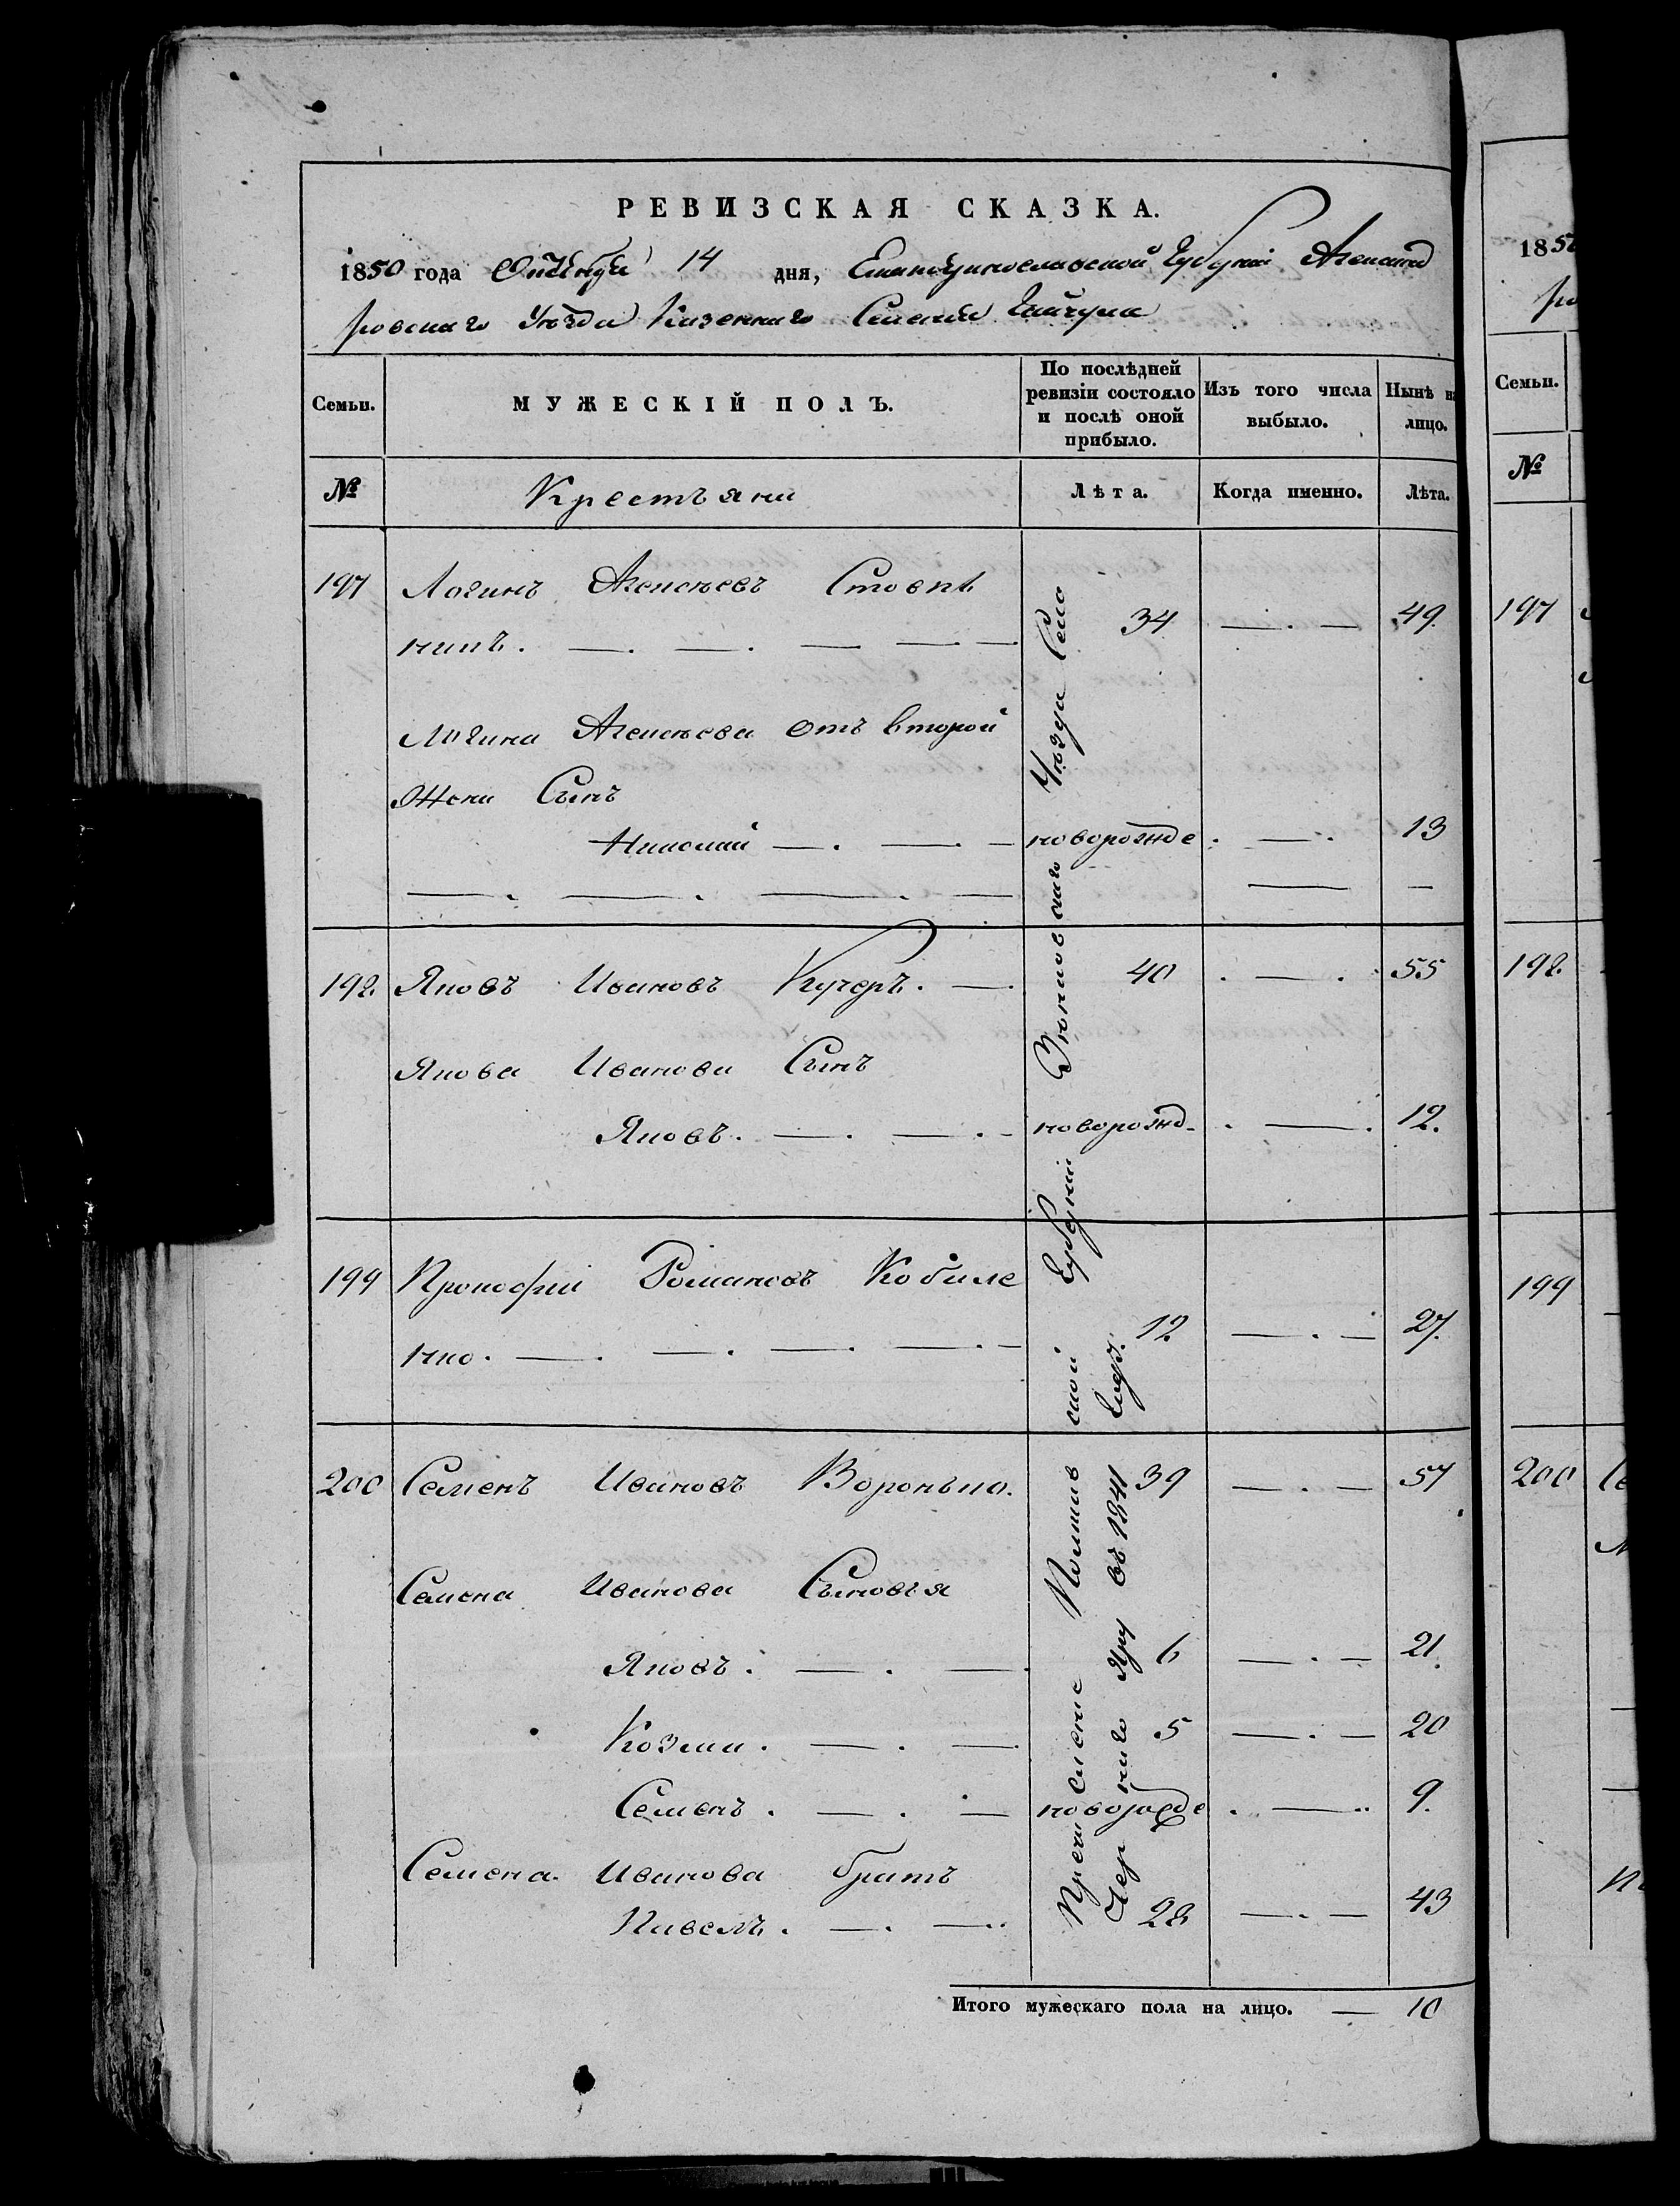 РЕВИЗСКАЯ СКАЗКА.
1850 года Октября 14 дня, Екатеринославской Губерніи Александ
ровскаго Уѣзда Казеннаго Селенія Гайчула
Семьи.
МУЖЕСКІЙ ПОЛЪ.
По послѣдней ревизіи состояло и послѣ оной прибыло.
Изъ того числа выбыло.
Нынѣ на лицо.
№
Крестьяни
Лѣта.
Когда именно.
Лѣта.
197 Логинъ Алексѣевъ
34 49
Логина Алексѣева отъ второй
Жени Сынъ
Николай новорожде 13
198 Яковъ Ивановъ Кучеръ. 40 55
Якова Иванова Сынъ
Яковъ. новорожд. 12.
199 Прокофій Романовъ Кобиле
нко. 12 27.
200 Семенъ Ивановъ Воронько. 39 57
Семена Иванова Сыновья
Яковъ. 6 21.
Козма. 5 20
Семенъ. новорожде 9.
Семена Иванова братъ
Павелъ. 28 43
Перечислене Полтав ской Губерніи Зѣньковскаго Уѣзда Села
въ 1841
Итого мужескаго пола на лицо. — 10
185
Семьи.
№
197
198
199
200